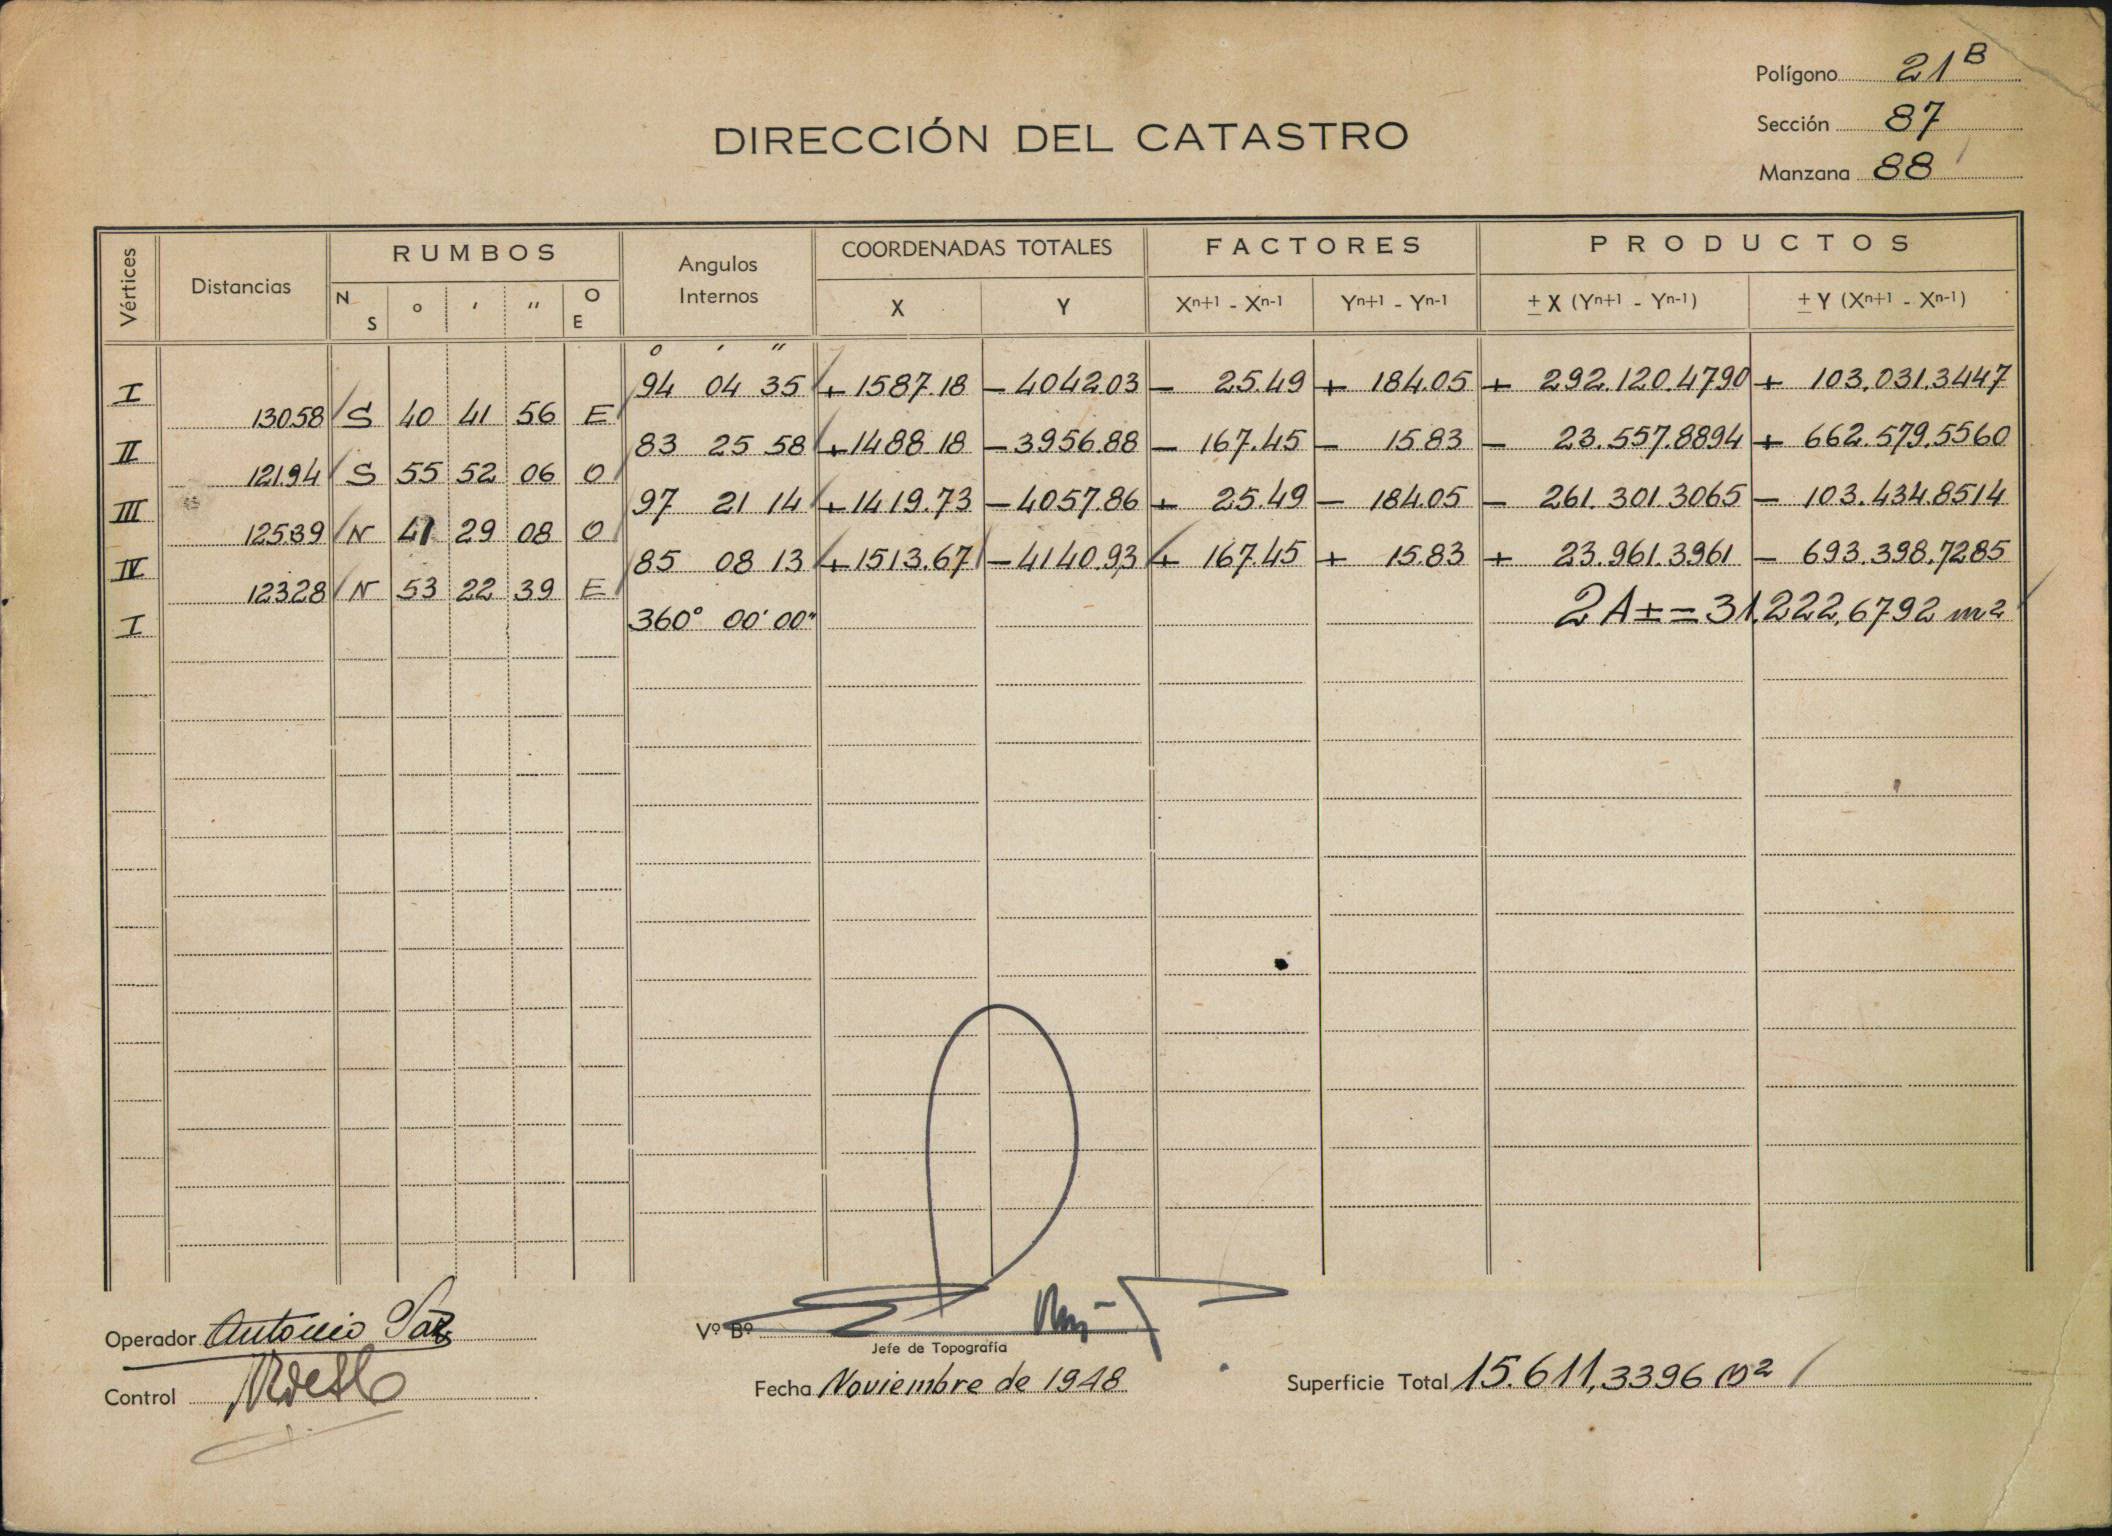 Polígono 21B
Sección 87
Manzana 88
DIRECCIÓN DEL CATASTRO
Vértices Distancias RUMBOS Angulos Internos COORDENADAS TOTALES FACTORES PRODUCTOS
N S ° ' " O E X Y Xn+1 - Xn-1 Yn+1 - Yn-1 ± X (Yn+1 - Yn-1) ± Y (Xn+1 - Xn-1)
° ' "
I 94 04 35 + 1587.18 - 4042.03 - 25.49 + 184.05 + 292.120.4790 + 103.031.3447
130.58 S 40 41 56 E
II 83 25 58 + 1488.18 - 3956.88 - 167.45 - 15.83 - 23.557.8894 + 662.579.5560
121.94 S 55 52 06 O
III 97 21 14 + 1419.73 - 4057.86 + 25.49 - 184.05 - 261.301.3065 - 103.434.8514
125.39 N 41 29 08 O
IV 85 08 13 + 1513.67 - 4140.93 + 167.45 + 15.83 + 23.961.3961 - 693.398.7285
123.28 N 53 22 39 E
I 360° 00' 00" 2A± = 31.222,6792 m2
Operador Antonio
Vº Bº
Jefe de Topografía
Control
Fecha Noviembre de 1948
Superficie Total 15.611,3396 m2